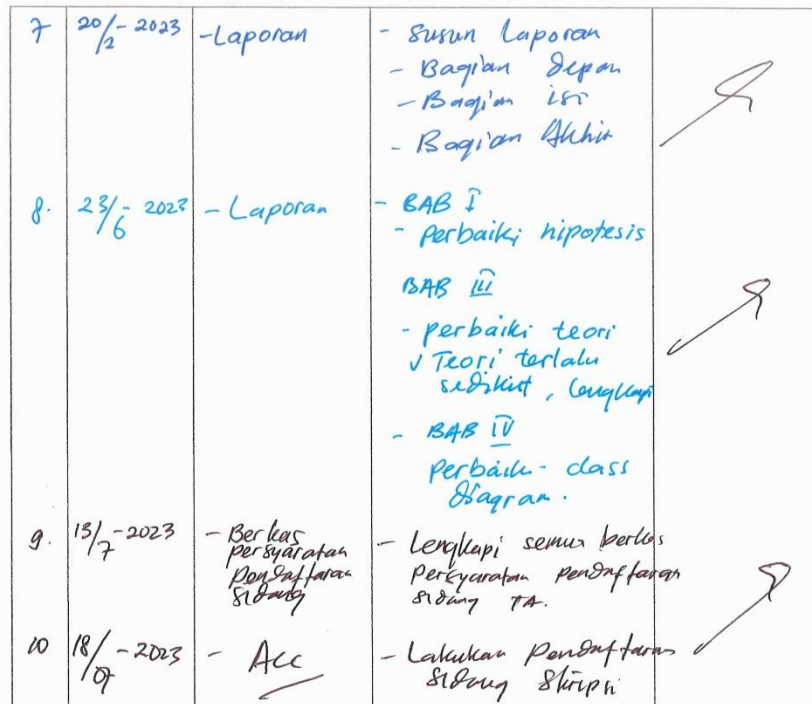 7 20/2-2023 - Laporan - Susun Laporan
- Bagian depan
- Bagian isi
- Bagian Akhir
8. 23/6-2023 - Laporan - BAB I
- Perbaiki hipotesis
BAB III
- perbaiki teori
√ Teori terlalu
sedikit, lengkapi
- BAB IV
Perbaiki - class
diagram.
9. 13/7-2023 - Berkas - Lengkapi semua berkas
persyaratan Persyaratan pendaftaran
Pendaftaran sidang TA.
sidang
10 18/07-2023 - Acc - Lakukan Pendaftaran
sidang Skripsi